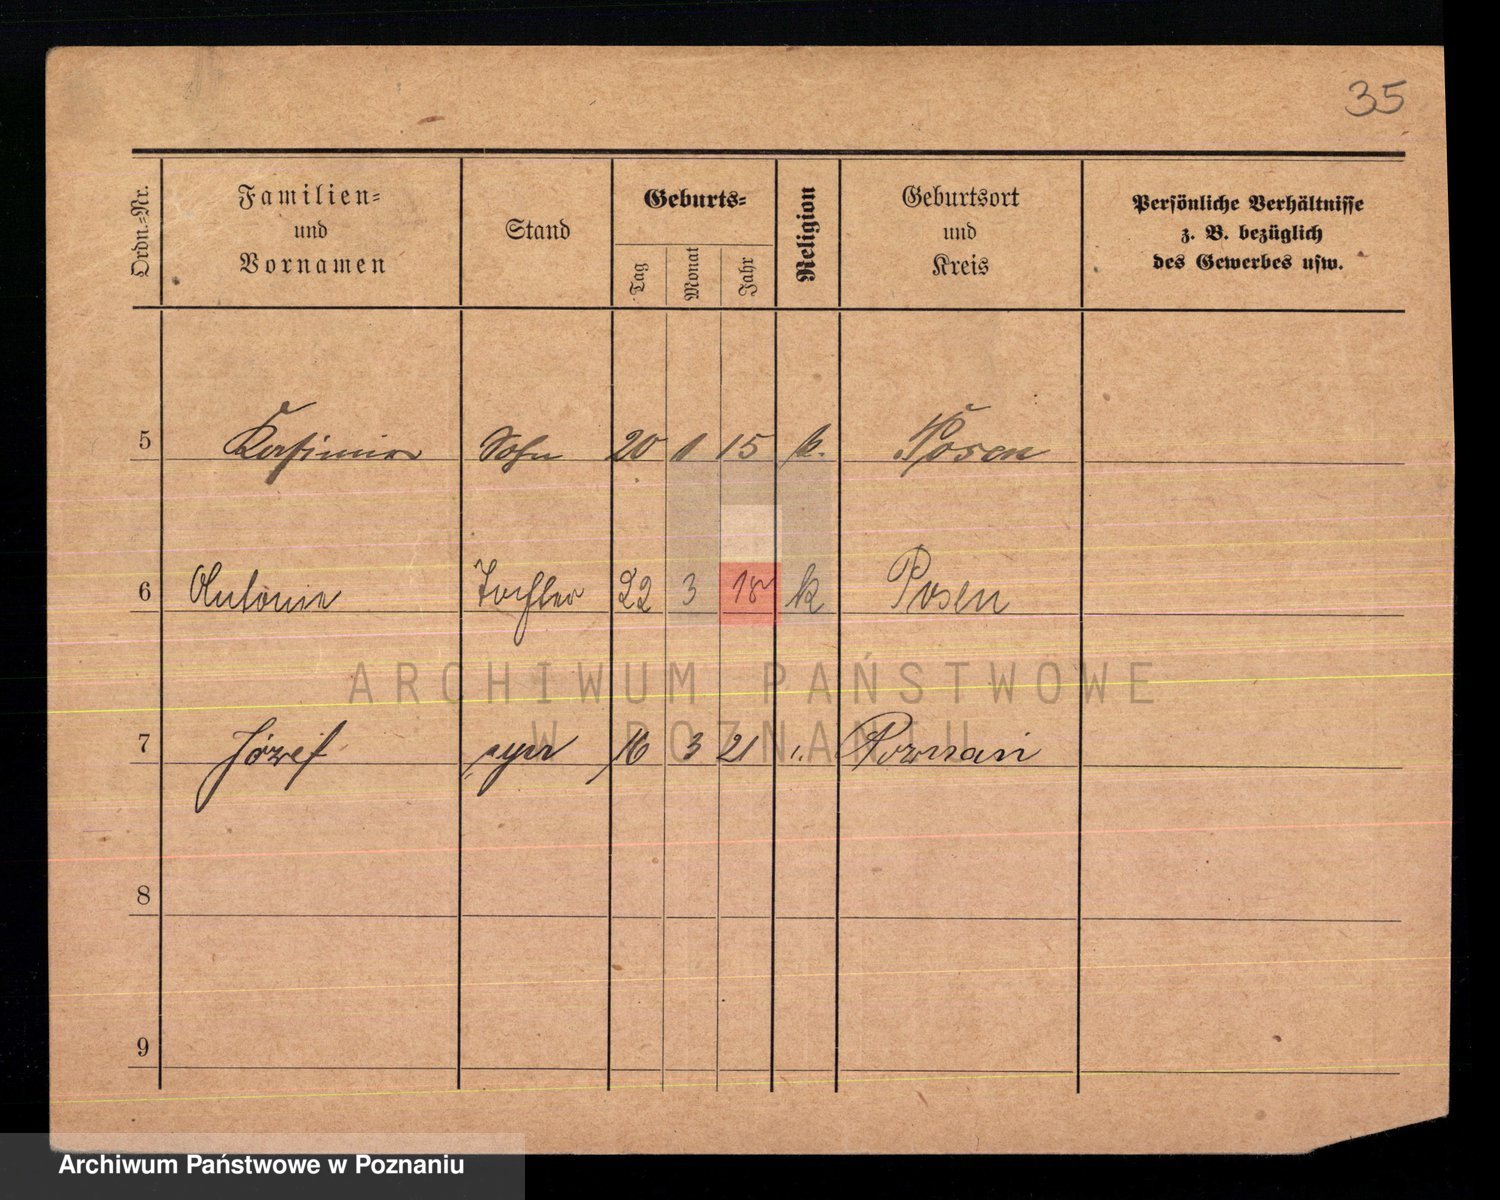 35
Ordn.=Nr.
Familien=
und
Vornamen
Stand
Geburts=
Tag
Monat
Jahr
Religion
Geburtsort
und
Kreis
Persönliche Verhältnisse
z. B. bezüglich
des Gewerbes usw.
5 Kasimir Sohn 20 1 15 k. Posen
6 Antonie Tochter 22 3 18 k Posen
ARCHIWUM PAŃSTWOWE
W POZNANIU
7 Józef syn 16 3 21 ". Poznań
8
9
Archiwum Państwowe w Poznaniu